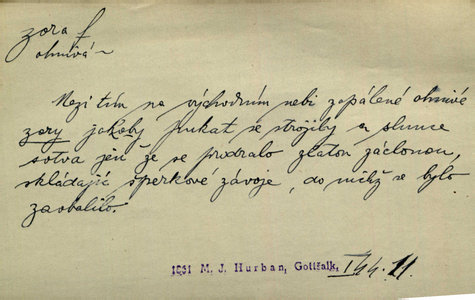 zora f
ohnivá~
Mezi tím na východním nebi zapálené ohnivé
zory jakoby pukat se strojily a slunce
sotva jen že se prodralo zlatou záclonou,
skládajíc šperkové závoje, do nichž se bylo
zaobalilo.
1861 M. J. Hurban, Gottšalk, 144. 11.